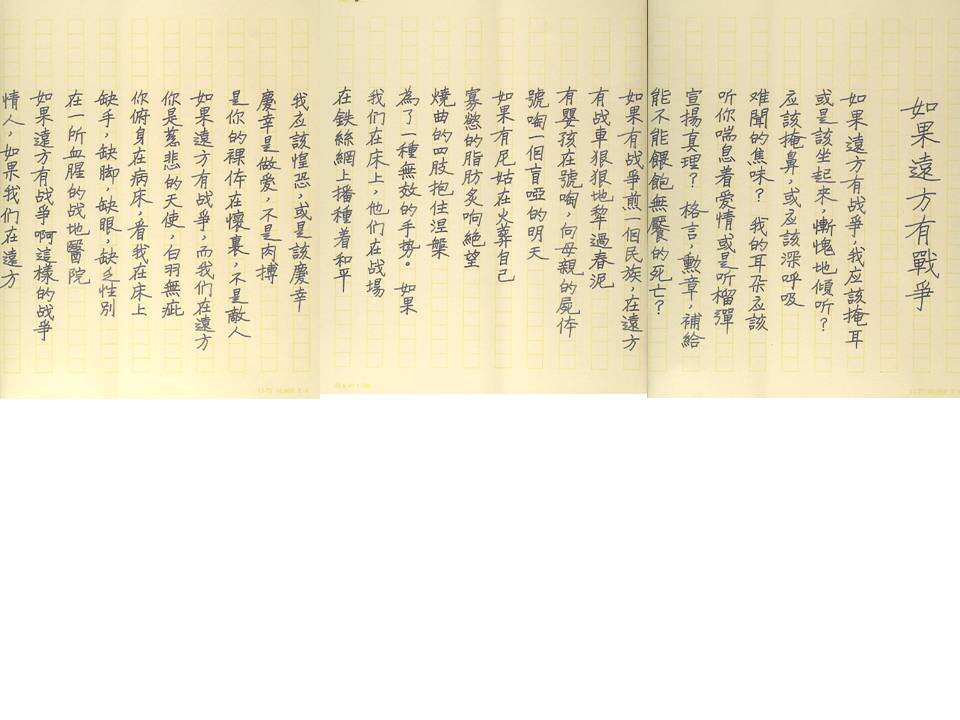 如果遠方有戰爭
如果遠方有战爭，我应該掩耳
或是該坐起來，慚愧地傾听？
应該掩鼻，或应該深呼吸
难聞的焦味？我的耳朵应該
听你喘息着爱情或是听榴彈
宣揚真理？格言，勳章，補給
能不能餵飽無饜的死亡？
如果有战爭煎一個民族，在遠方
有战車狠狠地犂過春泥
有嬰孩在號啕，向母親的屍体
號啕一個盲啞的明天
如果有尼姑在火葬自己
寡慾的脂肪炙响絶望
燒曲的四肢抱住涅槃
為了一種無效的手勢。如果
我们在床上，他们在战場
在鉄絲網上播種着和平
我应該惶恐，或是該慶幸
慶幸是做爱，不是肉搏
是你的裸体在懷裏，不是敵人
如果遠方有战爭，而我们在遠方
你是慈悲的天使，白羽無疵
你俯身在病床，看我在床上
缺手，缺脚，缺眼，缺乏性別
在一所血腥的战地醫院
如果遠方有战爭啊這樣的战爭
情人，如果我们在遠方